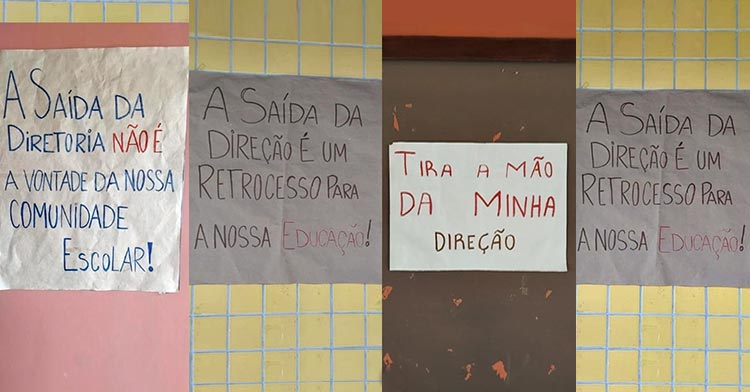 A SAÍDA DA
DIRETORIA NÃO É
A VONTADE DA NOSSA
COMUNIDADE
ESCOLAR!
A SAÍDA DA
DIREÇÃO É UM
RETROCESSO PARA
A NOSSA EDUCAÇÃO!
TIRA A MÃO
DA MINHA
DIREÇÃO
A SAÍDA DA
DIREÇÃO É UM
RETROCESSO PARA
A NOSSA EDUCAÇÃO!